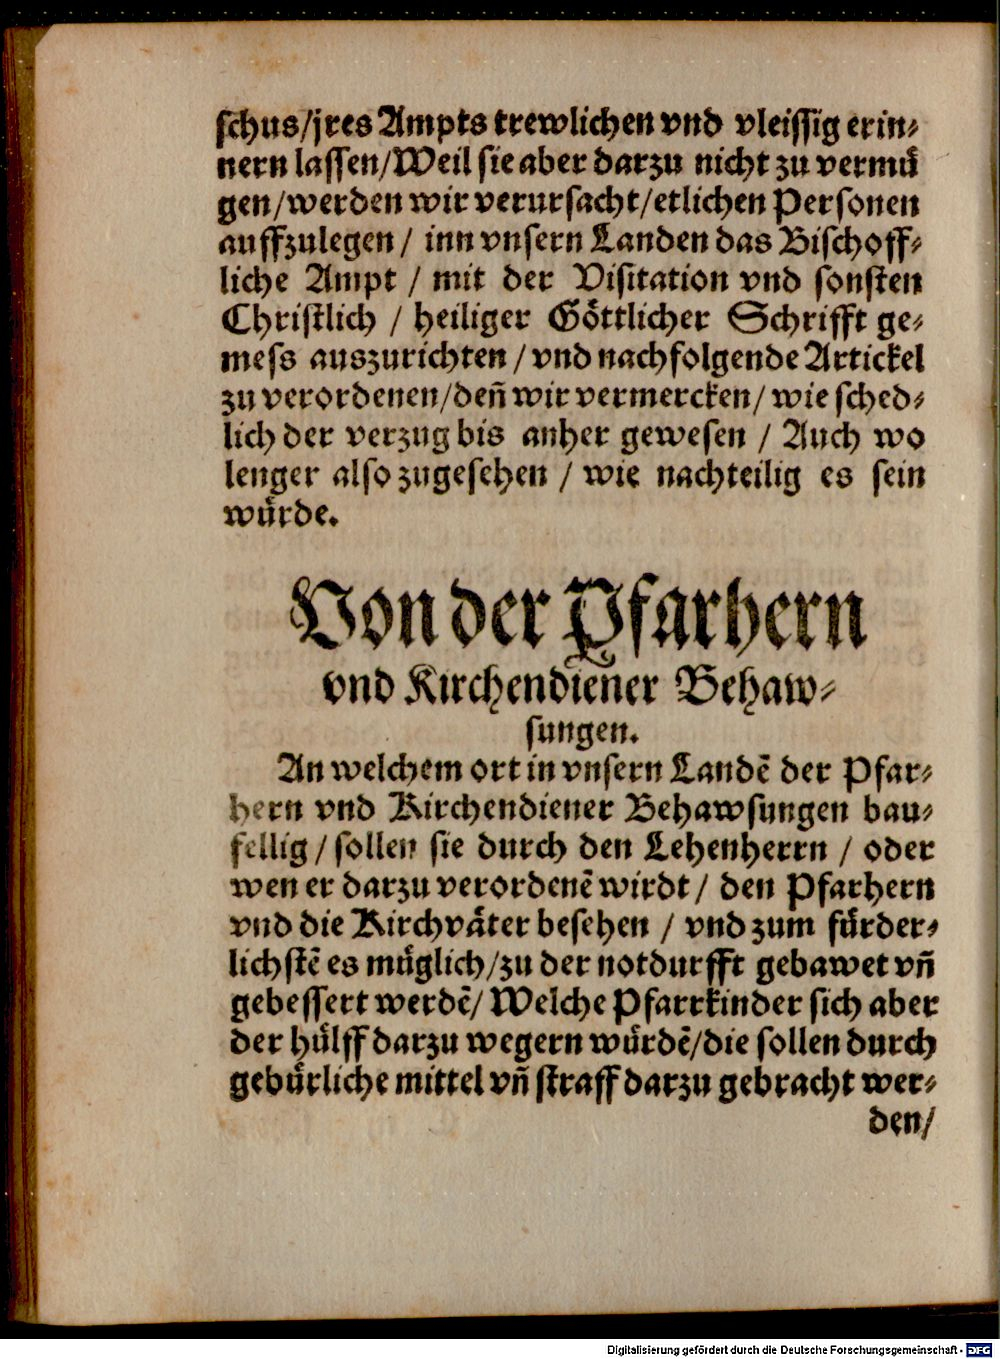 schus/jres Ampts trewlichen vnd vleissig erin⸗
nern lassen/Weil sie aber darzu nicht zu vermuͤ
gen/werden wir verursacht/etlichen Personen
auffzulegen / inn vnsern Landen das Bischoff⸗
liche Ampt / mit der Visitation vnd sonsten
Christlich / heiliger Goͤttlicher Schrifft ge⸗
mess auszurichten / vnd nachfolgende Artickel
zu verordenen/deñ wir vermercken/ wie sched⸗
lich der verzug bis anher gewesen / Auch wo
lenger also zugesehen / wie nachteilig es sein
wuͤrde.
Von der Pfarhern
vnd Kirchendiener Behaw⸗
sungen.
An welchem ort in vnsern Landẽ der Pfar⸗
hern vnd Kirchendiener Behawsungen bau⸗
fellig / sollen sie durch den Lehenherrn / oder
wen er darzu verordenẽ wirdt / den Pfarhern
vnd die Kirchvaͤter besehen / vnd zum fuͤrder⸗
lichstẽ es muͤglich/zu der notdurfft gebawet vñ
gebessert werdẽ/ Welche Pfarrkinder sich aber
der huͤlff darzu wegern wuͤrdẽ/die sollen durch
gebuͤrliche mittel vñ straff darzu gebracht wer⸗
den/
Digitalisierung gefördert durch die Deutsche Forschungsgemeinschaft - DFG